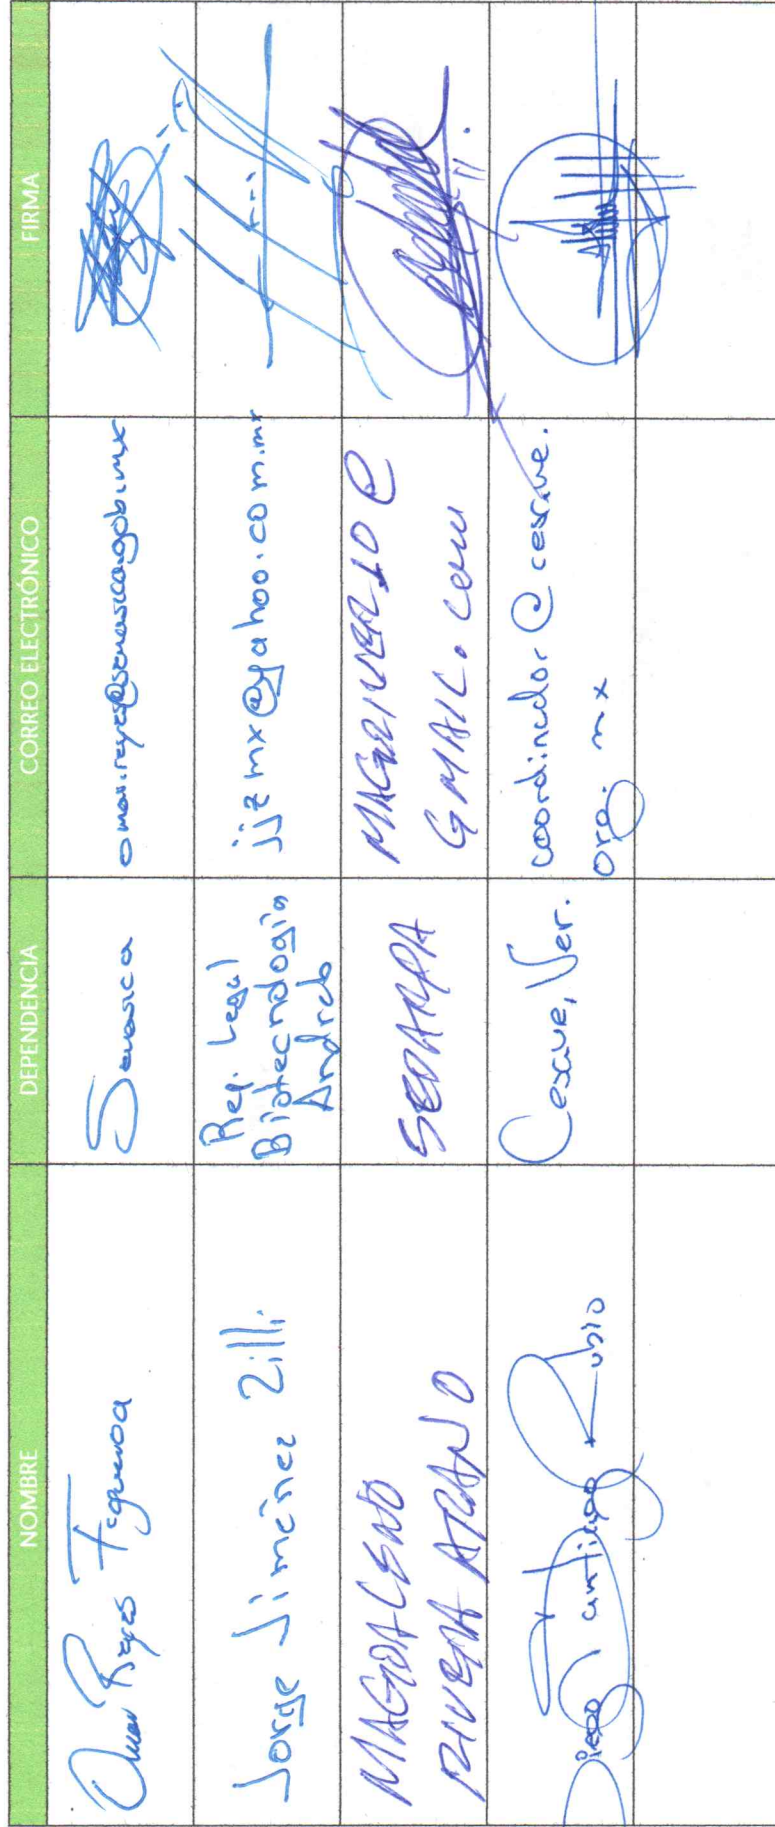 NOMBRE DEPENDENCIA CORREO ELECTRÓNICO FIRMA
Omar Reyes Figueroa Senasica omar.reyes@senasica.gob.mx
Jorge Jiménez Zilli Rep. Legal
Biotecnologia
Andreb
jjzmx@yahoo.com.mx
MAGDALENO
RIVERA ARANO
SEDARPA
@
GMAIL.COM
Diego Santiago Rubio
Cesave, Ver.
coordinador@cesave.
org.mx